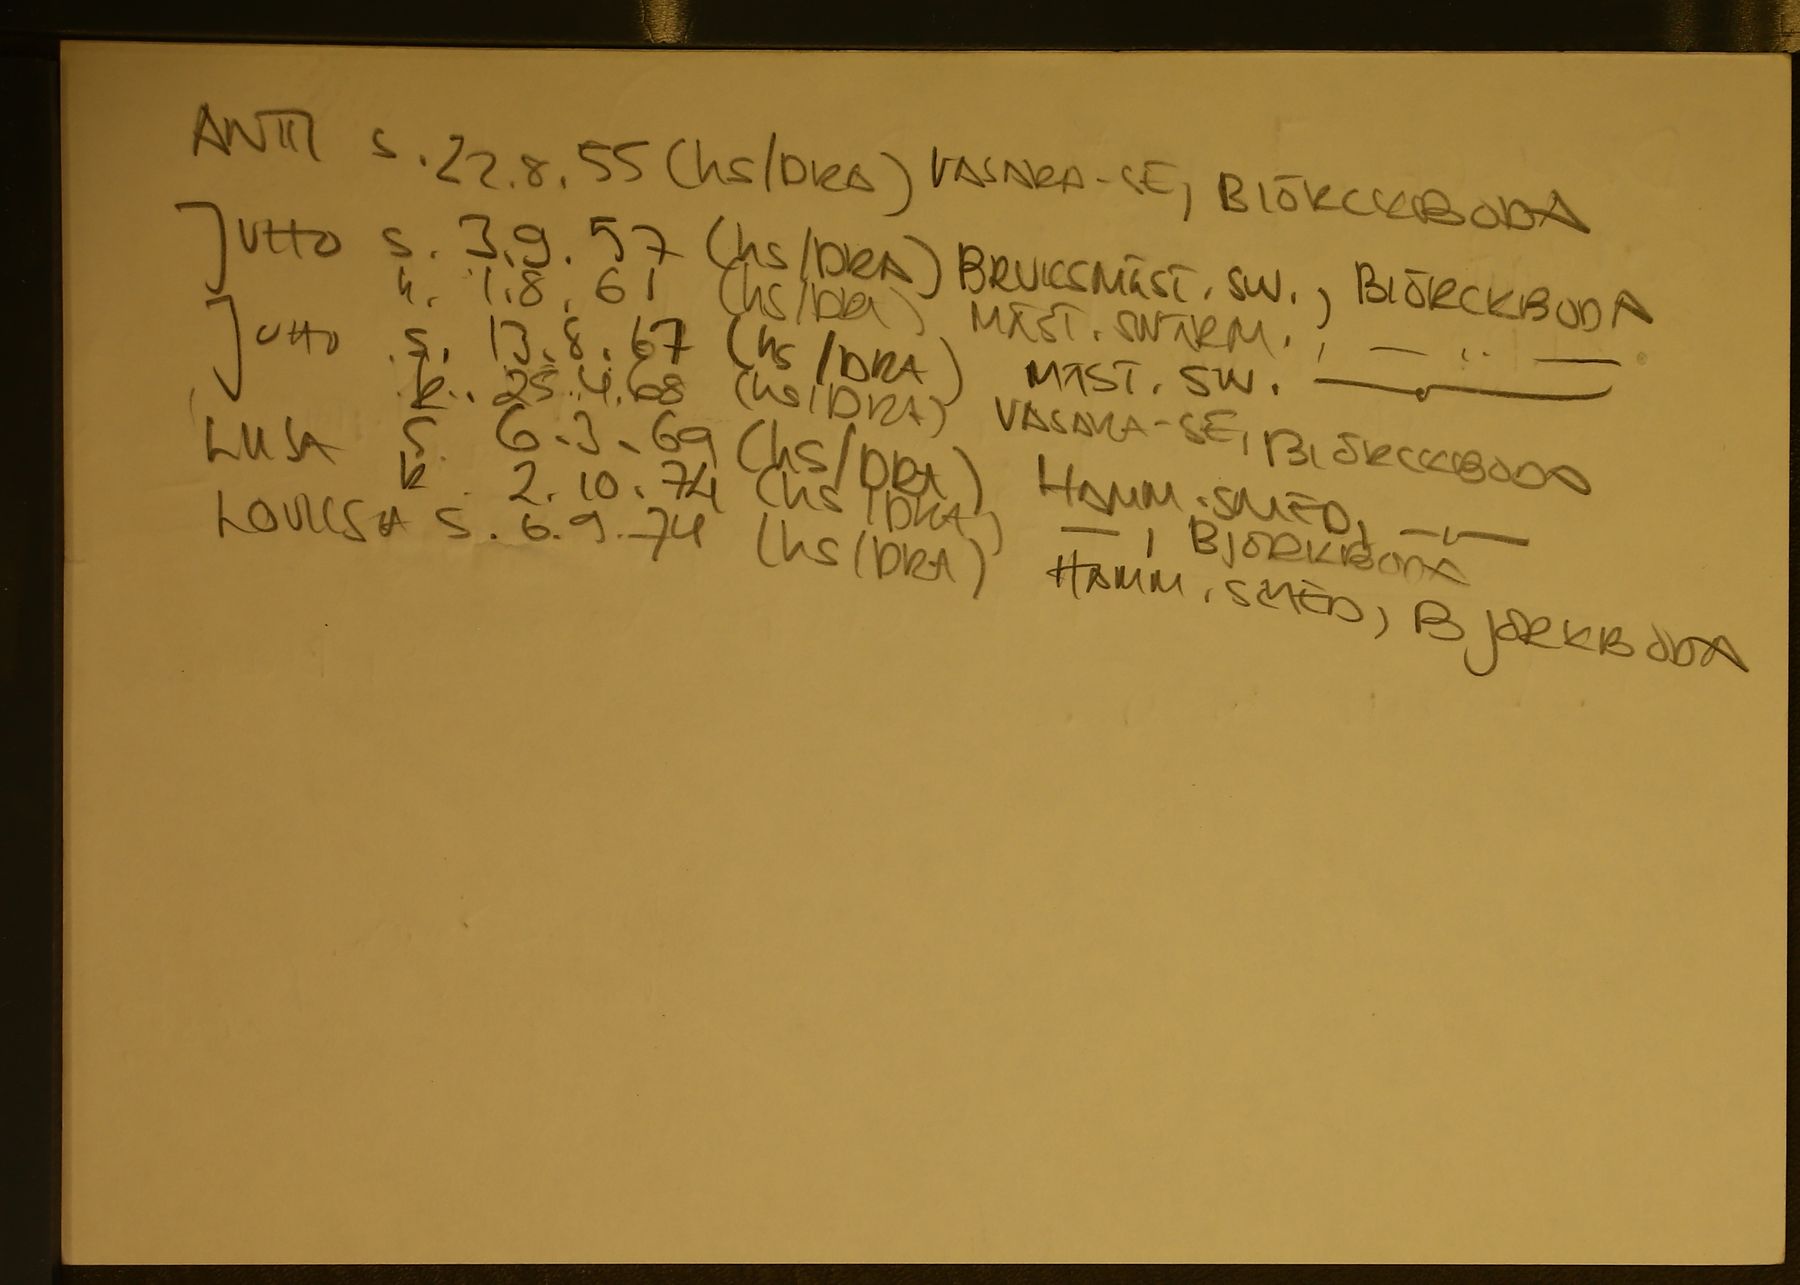 ANTTI s. 22.8.55 (hs/DRA) VASARA-SE, BIÖRCKBODA
JUHO s. 3.9.57 (hs/DRA) BRUKSMÄST. SW., BIÖRCKBODA
k. 1.8.61 (hs/DRA) MÄST. SWÄRM., — " —
JUHO s. 13.8.67 (hs/DRA) MÄST. SW. — " —
k. 25.4.68 (hs/DRA) VASARA-SE, BIÖRCKBODA
LIISA s. 6.3.69 (hs/DRA) HAMM.SMED, — " —
k. 2.10.74 (hs/DRA) — , BJÖRKBODA
LOVICSA s. 6.9.74 (hs/DRA) HAMM.SMED, BJÖRKBODA